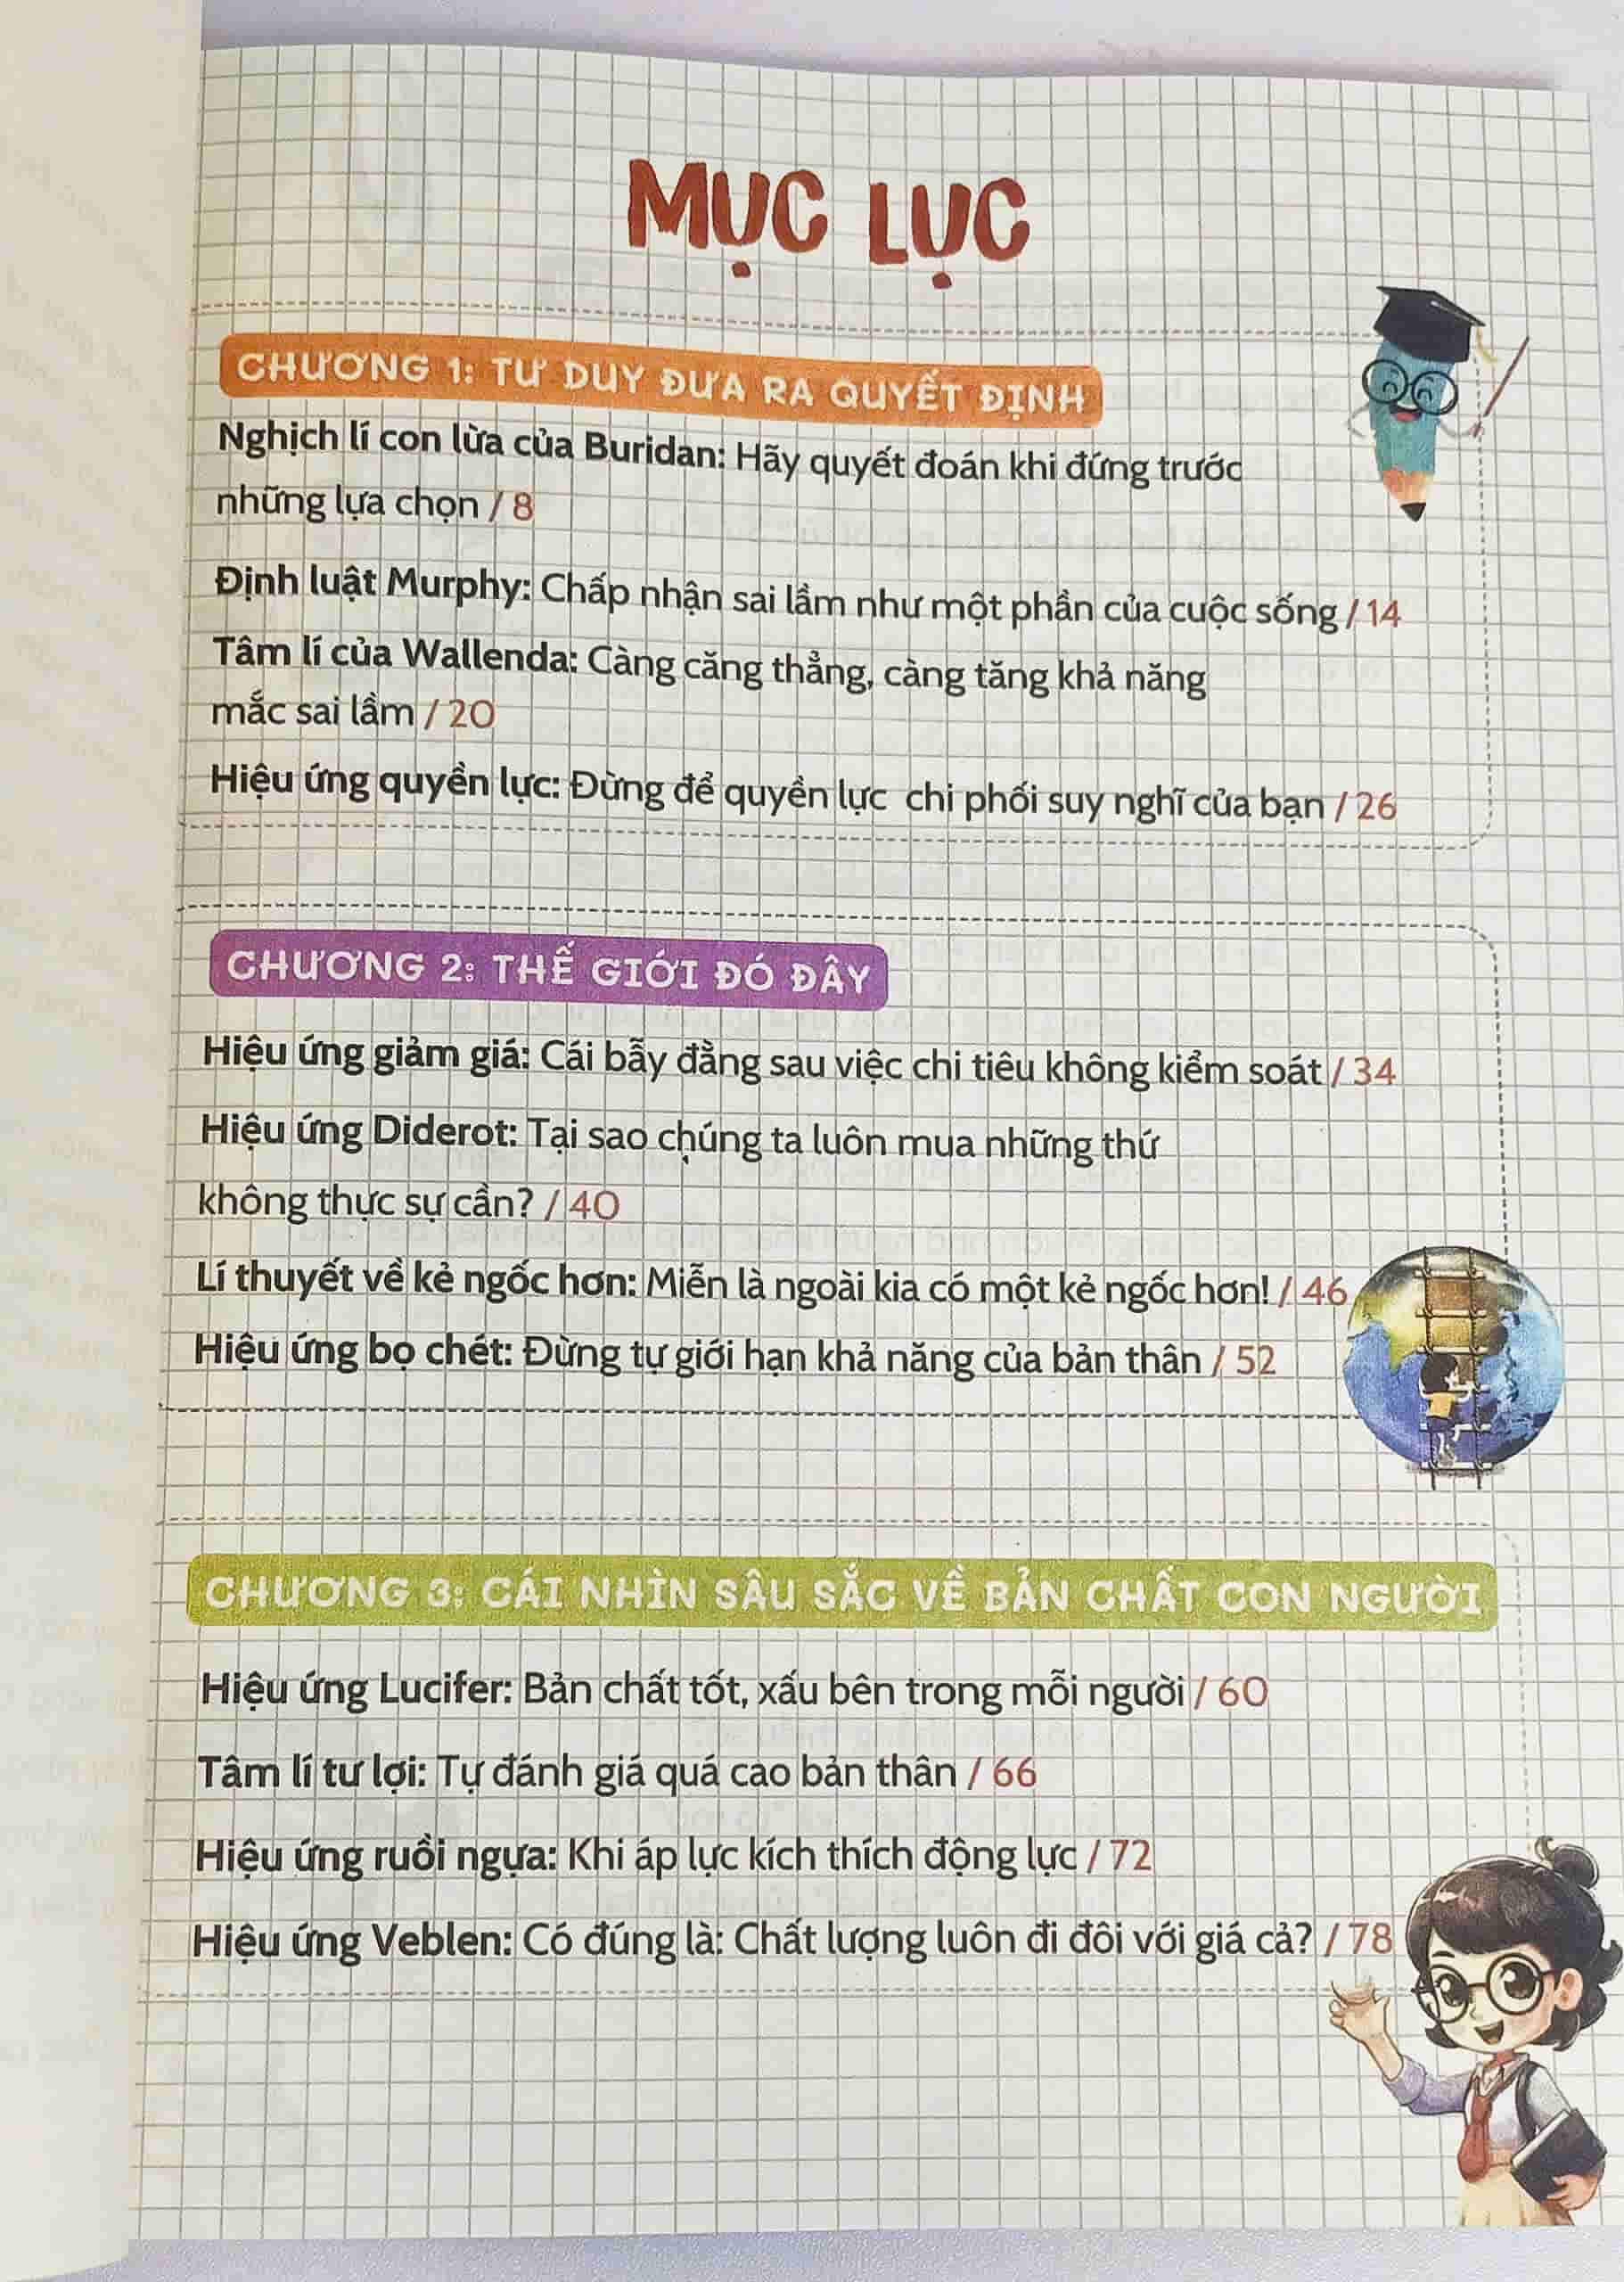 MỤC LỤC
CHƯƠNG 1: TƯ DUY ĐƯA RA QUYẾT ĐỊNH
Nghịch lí con lừa của Buridan: Hãy quyết đoán khi đứng trước
những lựa chọn / 8
Định luật Murphy: Chấp nhận sai lầm như một phần của cuộc sống / 14
Tâm lí của Wallenda: Càng căng thẳng, càng tăng khả năng
mắc sai lầm / 20
Hiệu ứng quyền lực: Đừng để quyền lực chi phối suy nghĩ của bạn / 26
CHƯƠNG 2: THẾ GIỚI ĐÓ ĐÂY
Hiệu ứng giảm giá: Cái bẫy đằng sau việc chi tiêu không kiểm soát / 34
Hiệu ứng Diderot: Tại sao chúng ta luôn mua những thứ
không thực sự cần? / 40
Lí thuyết về kẻ ngốc hơn: Miễn là ngoài kia có một kẻ ngốc hơn! / 46
Hiệu ứng bọ chét: Đừng tự giới hạn khả năng của bản thân / 52
CHƯƠNG 3: CÁI NHÌN SÂU SẮC VỀ BẢN CHẤT CON NGƯỜI
Hiệu ứng Lucifer: Bản chất tốt, xấu bên trong mỗi người / 60
Tâm lí tư lợi: Tự đánh giá quá cao bản thân / 66
Hiệu ứng ruồi ngựa: Khi áp lực kích thích động lực / 72
Hiệu ứng Veblen: Có đúng là: Chất lượng luôn đi đôi với giá cả? / 78